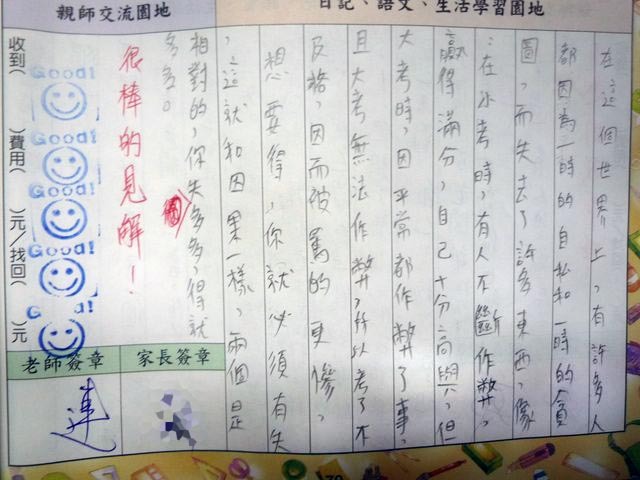 日記、語文、生活學習園地
在這個世界上,有許多人
都因為一時的自私和一時的貪
圖,而失去了許多東西,像
:在小考時,有人不斷作弊,
贏得滿分,自己十分高興,但
大考時,因平常都作弊了事,
且大考無法作弊,所以考了不
及格,因而被罵的更慘。
想要得,你就必須有失
,這就和因果一樣,兩個是
相對的,你失多多,得就
多多。
親師交流園地
很棒的見解!
Good!
Good!
Good!
Good!
Good!
收到( )費用( )元/找回( )元
老師簽章
家長簽章
連